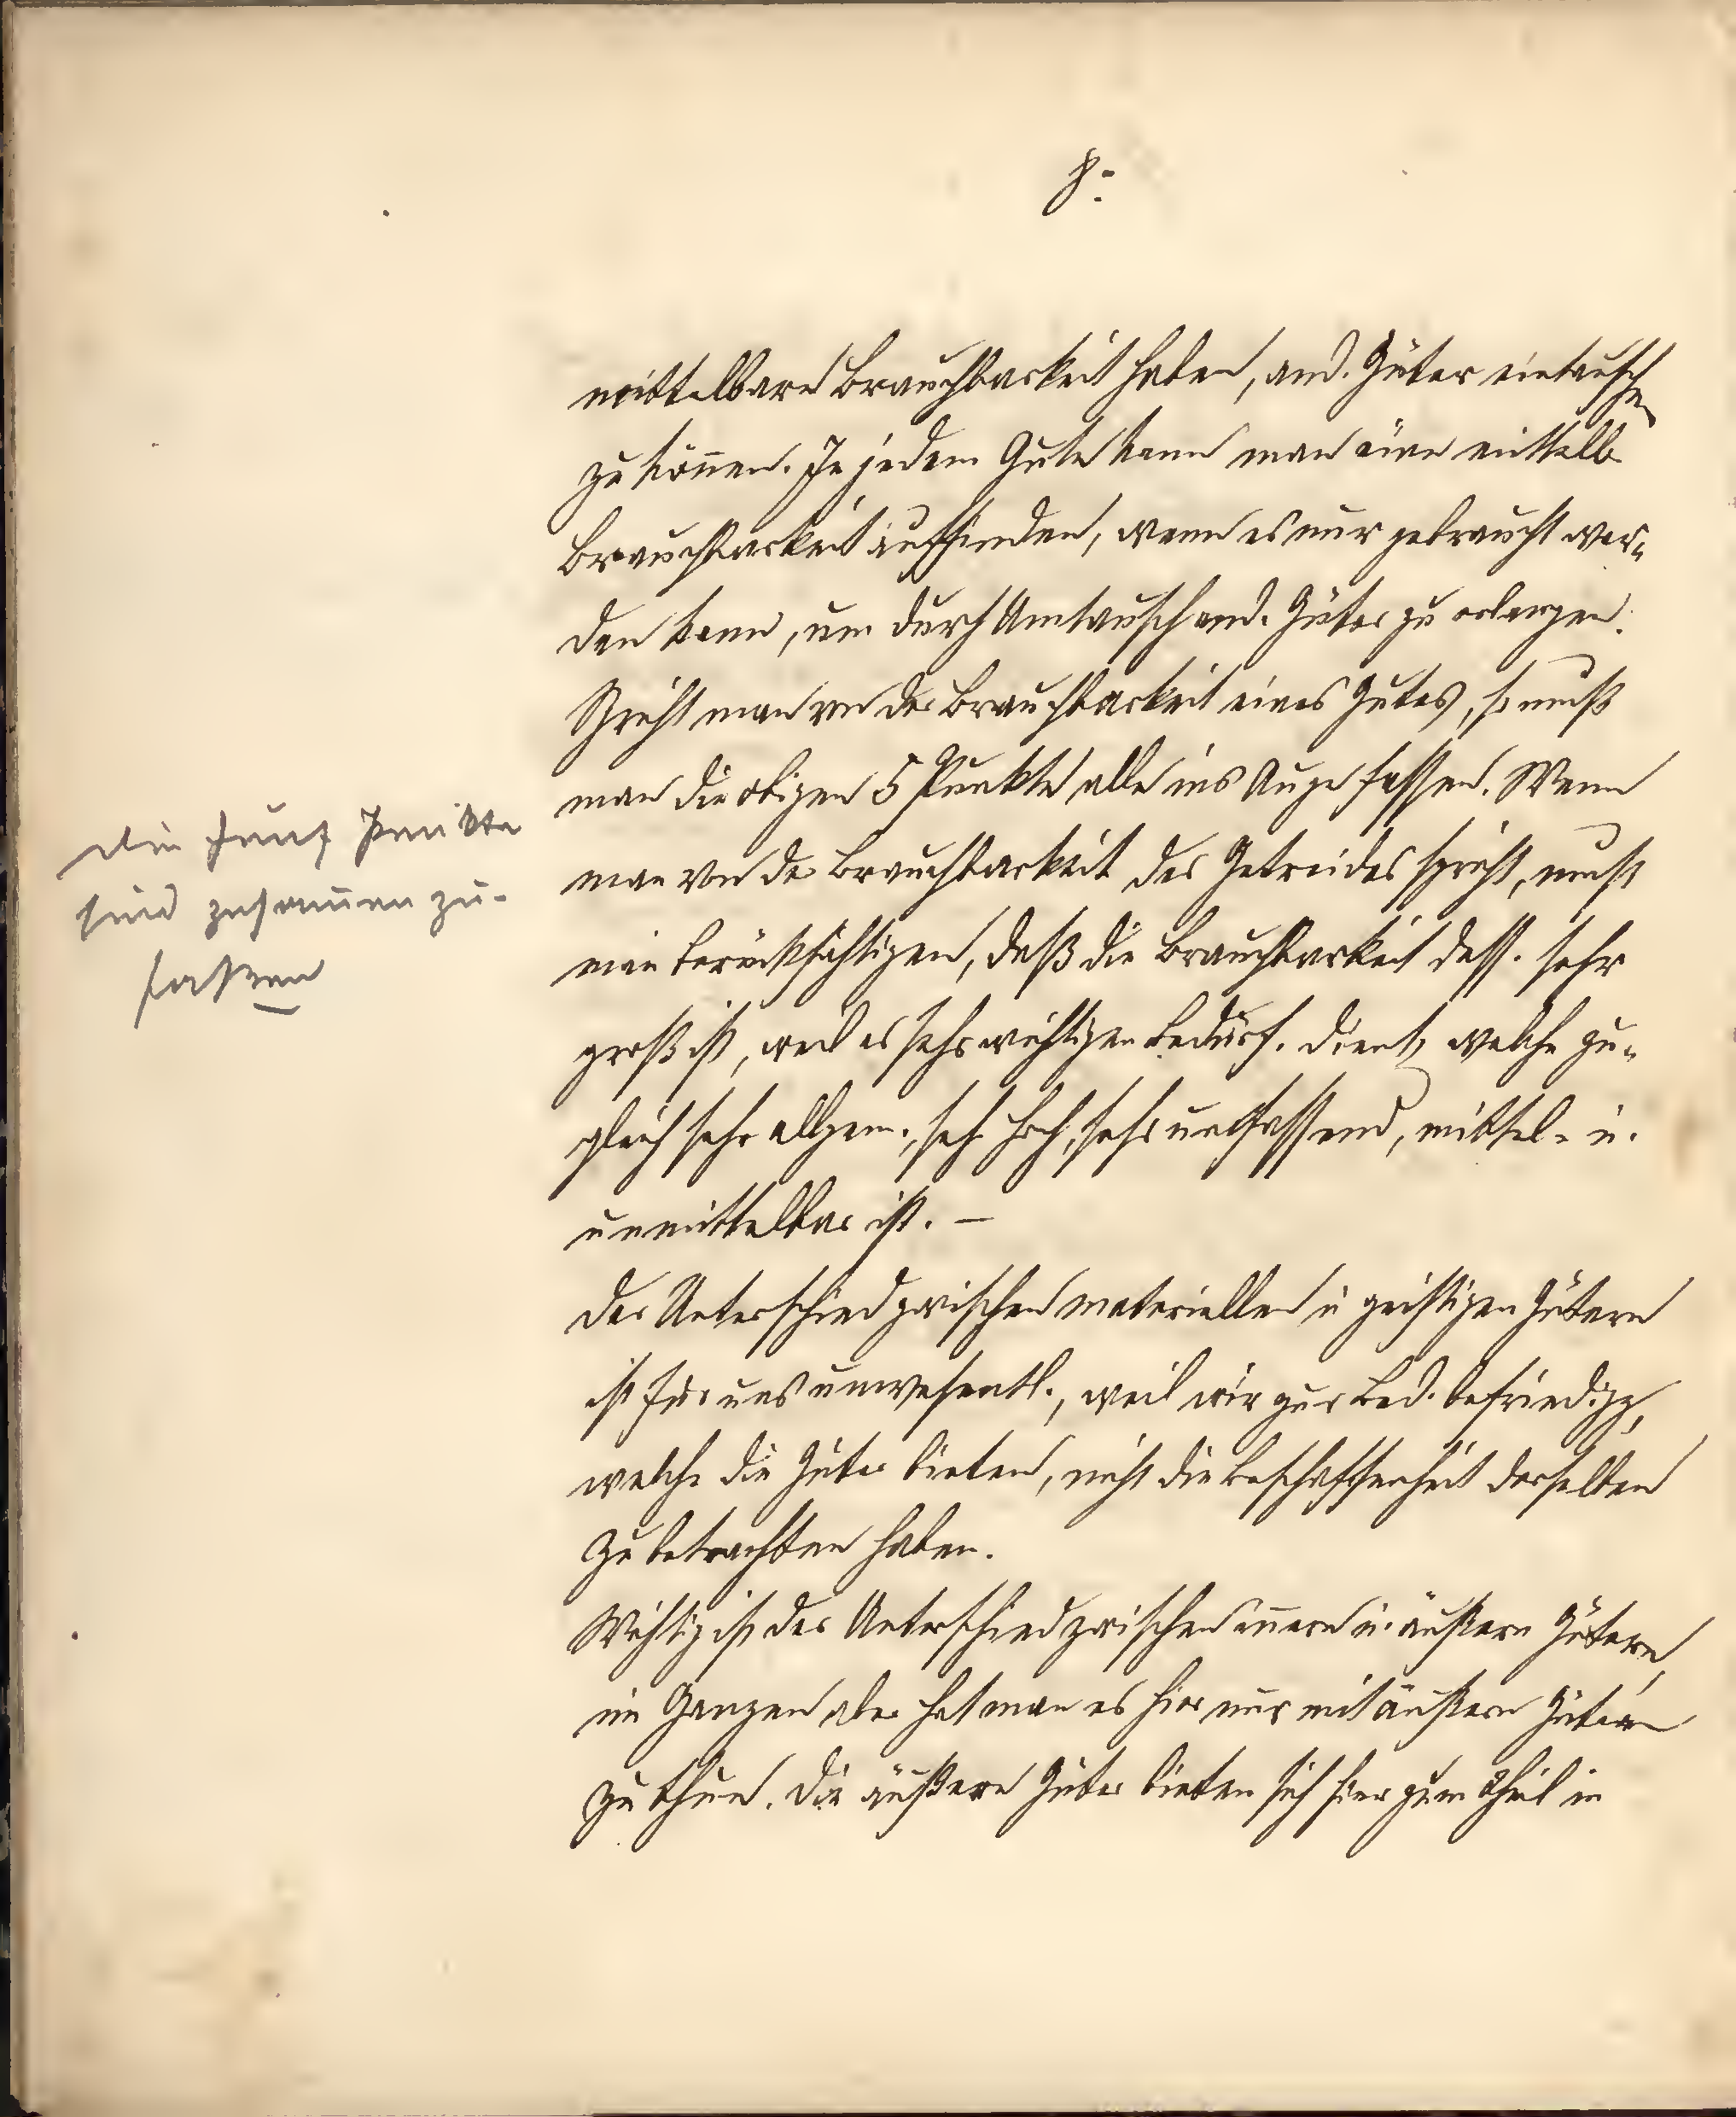 8.
mittelbare Brauchbarkeit haben, and. Güter eintauschen
zu können. In jedem Gute kann man eine mittelb.
Brauchbarkeit auffinden, wenn es nur gebraucht wer-
den kann, um durch Umtausch and. Güter zu erlangen.
Spricht man von der Brauchbarkeit eines Gutes, so muß
man die obigen 5 Punkte alle ins Auge fassen. Wenn
man von der Brauchbarkeit des Getreides spricht, muß
man berücksichtigen, daß die Brauchbarkeit dess. sehr
groß ist, weil es sehr wichtigen Bedürf. dient, welche zu-
gleich sehr allgem., sehr hoch, sehr umfassend, mittel- u.
unmittelbar ist. —
Der Unterschied zwischen materiellen u geistigen Gütern
ist für uns unwesentl., weil wir zur Bed. befriedigg,
welche die Güter bieten, nicht die Beschaffenheit derselben
zu betrachten haben.
Wichtig ist der Unterschied zwischen innern u. äußern Gütern
im Ganzen aber hat man es hier nur mit äußern Gütern
zu thun. Die äußern Güter bieten sich hier zum Theil in
Die fünf Punkte
sind zusammen zu-
fassen